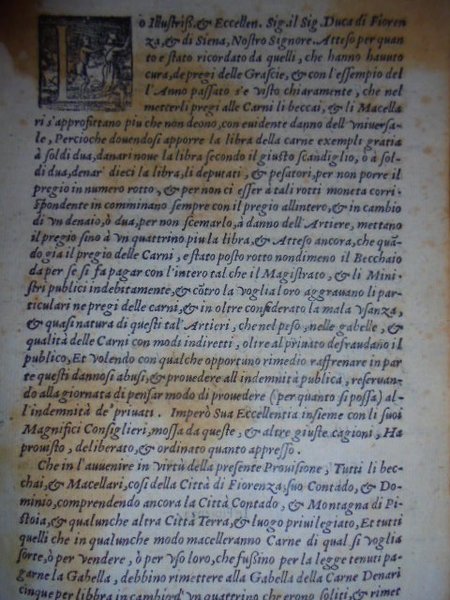 LO Illustriss. & Eccellen. Sig. il Sig. Duca di Fioren
za, & di Siena, Nostro Signore. Atteso per quan
to e stato ricordato da quelli, che hanno hauuto
cura, de pregi delle Grascie, & con l'essempio del
l'Anno passato s'e visto chiaramente, che nel
metterli pregi alle Carni li beccai, & li Macella
ri s'approfittano piu che non deono, con euidente danno dell'Vniuersa-
le, Percioche douendosi apporre la libra della carne exempli gratia
à soldi dua, danari noue la libra secondo il giusto scandiglio, o à sol-
di dua, denar' dieci la libra, li deputati, & pesatori, per non porre il
pregio in numero rotto, & per non ci esser à tali rotti moneta corri-
spondente in comminano sempre con il pregio allintero, & in cambio
di vn denaio, ò dua, per non scemarlo, à danno dell'Artiere, mettano
il pregio sino à vn quattrino piu la libra, & Atteso ancora, che quā-
do gia il pregio delle Carni, e stato posto rotto nondimeno il Becchaio
da per se si fa pagar con l'intero tal che il Magistrato, & li Mini-
stri publici indebitamente, & cōtro la voglia loro aggrauano li par-
ticulari ne pregi delle carni, & in oltre considerato la mala vsanza,
& quasi natura di questi tal' Artieri, che nel peso, nelle gabelle, &
qualità delle Carni con modi indiretti, oltre al priuato defraudano il
publico, Et volendo con qualche opportuno rimedio raffrenare in par
te questi dannosi abusi, & prouedere all indemnità publica, reseruan-
do alla giornata di pensar modo di prouedere (per quanto si possa) al-
l'indemnità de' priuati. Imperò Sua Eccellentia insieme con li suoi
Magnifici Consiglieri, mossa da queste, & altre giuste cagioni, Ha
prouisto, deliberato, & ordinato quanto appresso.
Che in l'auuenire in Virtù della presente Prouisione, Tutti li bec-
chai, & Macellari, cosi della Città di Fiorenza, suo Contado, & Do-
minio, comprendendo ancora la Città Contado, & Montagna di Pi-
stoia, & qualunche altra Città Terra, & luogo priuilegiato, Et tutti
quelli che in qualunche modo macelleranno Carne di qual si voglia
sorte, ò per vendere, ò per vso loro, che fussino per la legge tenuti pa-
garne la Gabella, debbino rimettere alla Gabella della Carne Denari
cinque per libra in cambio d' vn quattrino che erono soliti, & rimet